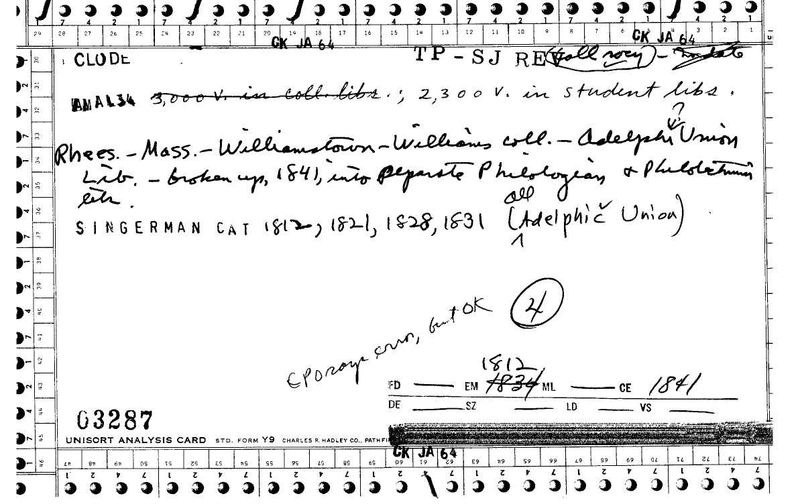 CK JA 64 CK JA 64
CLODE TP-SJ RE (coll rocy) -
AMAL34 3,000 v. in coll. libs.; 2,300 v. in student libs.
?
Rhees. - Mass. - Williamstown - Williams coll. - Adelphi Union
Lib. - broken up, 1841, into separate Philologian & Philotechnian
libr.
all
SINGERMAN CAT 1812, 1821, 1828, 1831 (Adelphic Union)
error, but OK
4
1812
FD EM 1834 ML CE 1841
DE SZ LD VS
03287
UNISORT ANALYSIS CARD STD. FORM Y9 CHARLES R. HADLEY CO., PATHFI
CK JA 64